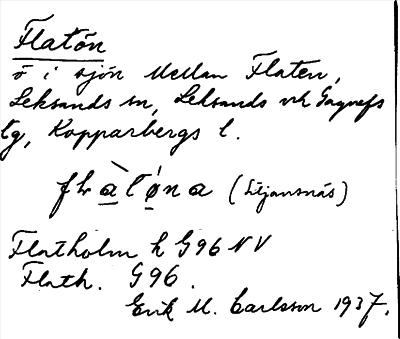 Flatön
ö i sjön Mellan Flaten,
Leksands sn, Leksands och Gagnefs
tg, Kopparbergs l.
flàtǿna (Litjansnäs)
Flatholm h G96 NV
Flath. G96.
Erik M. Carlsson 1937.